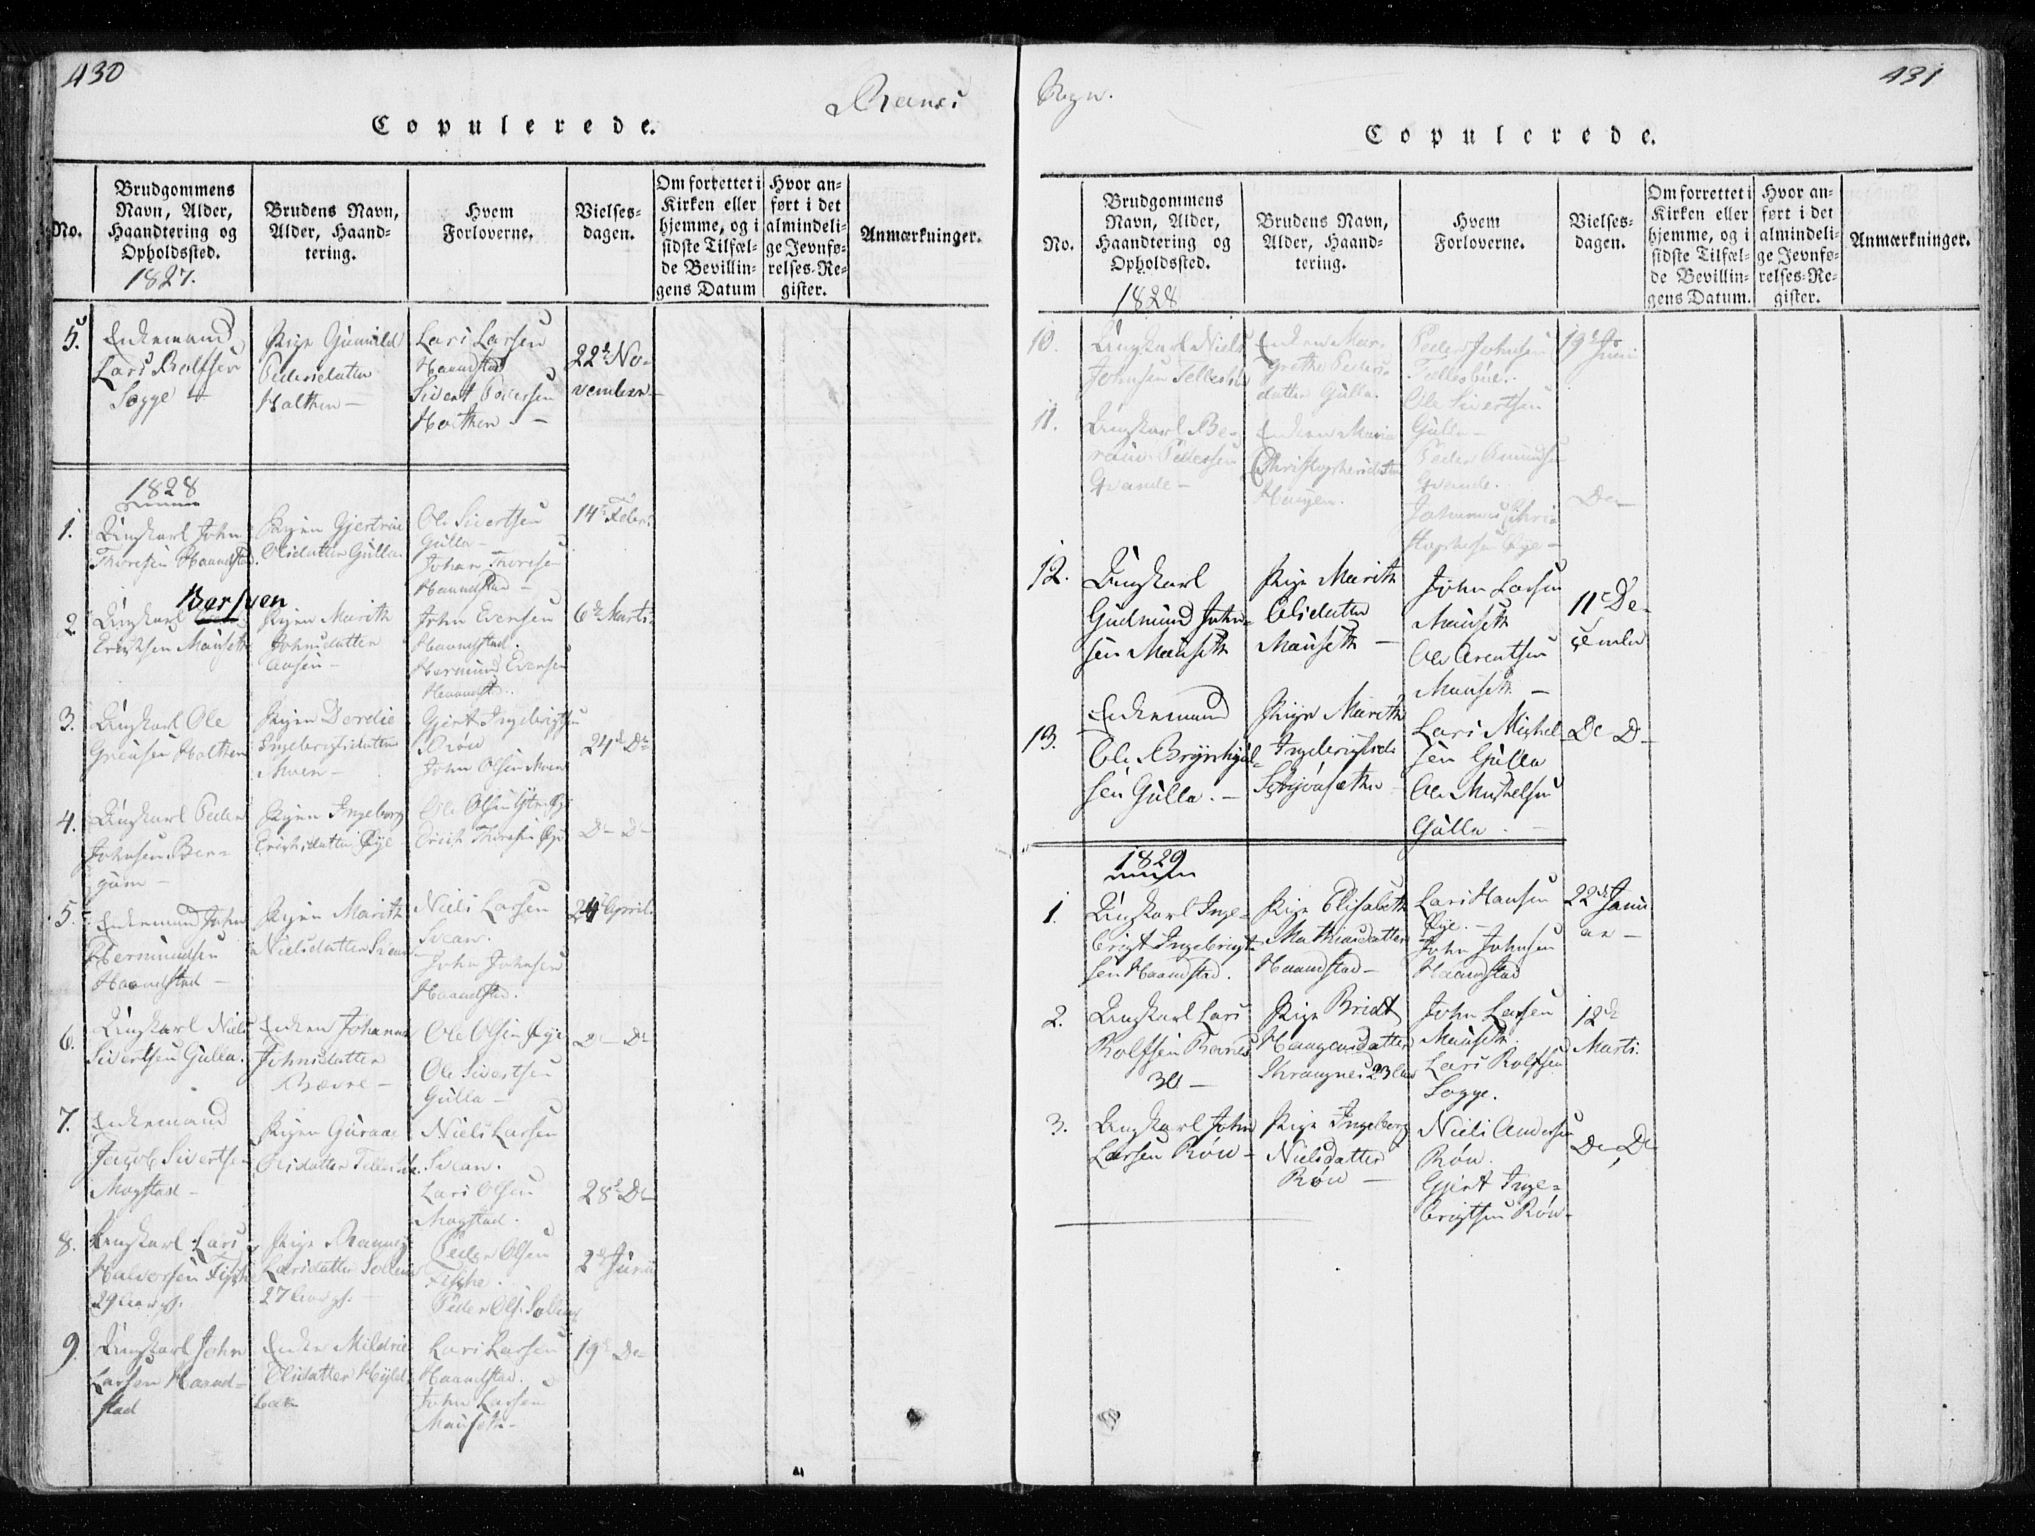 430
Ranes
Copulerede.
No.
Brudgommens
Navn, Alder,
Haandtering og
Opholdssted.
Brudens Navn,
Alder, Haand=
tering.
Hvem
Forloverne.
Vielses=
dagen.
Om forrettet i
Kirken eller
hjemme, og i
sidste Tilfæl=
de Bevillin=
gens Datum
Hvor an=
ført i det
almindeli=
ge Jevnfø=
relses=Re=
gister.
Anmærkninger.
1827.
5.
Enkemand
Lars
Sogge
Pige Gunild
Pedersdatter
Holthen
Lars Larsen
Haandstad
Sivert Pedersen
Holthen
22de No=
vember
1828
1.
Ungkarl John
Thoresen Haandstad.
Pigen Gjertrue
Olsdatter Gulla
Ole Sivertsen
Gulla
Johan Thoresen
Haandstad
14de Febr.
2
Ungkarl
Bersven
Erichsen Mauseth
Pigen Marith
Johnsdatter
Aasen
John Evensen
Haandstad.
Hermund Evensen
Haandst.
6de Marti.
3.
Ungkarl Ole
Holthen
Pigen Dordie
Ingebrigtsdatter
Moen
Gjert Ingebrigtsen
Røen
John Olsen Moen
24de Do
4.
Ungkarl Peder
Johnsen Ber=
gum
Pigen Ingeborg
Erichsdatter Øye
Ole Olsen Øye
Erich Thoresen Øye
Do Do
5.
Enkemand John
Hermundsen
Haandstad
Pigen Marith
Nielsdatter Svean
Niels Larsen
Svean.
John Johnsen
Haandstad.
24de April.
6.
Ungkarl Niels
Sivertsen Gulla.
Enken Johanna
Johnsdatter
Bævre
Ole Olsen Øye
Ole Sivertsen
Gulla
Do Do
7.
Enkemand
Jacob Sivertsen
Mogstad
Pigen Guraae
Olsdatter Tellesbøe
Niels Larsen
Svean.
Lars Olsen
Mogstad.
28de Do
8.
Ungkarl Lars
Halvorsen Fiske
29 Aar gl.
Pige Rannei
Larsdatter
27 Aar gl.
Peder Olsen
Fiske.
Peder Ols.
2de Juni
9.
Ungkarl John
Larsen Haand=
stad
Enke Mildrie
Olsdatter Hyld=
bak
Lars Larsen
Haandstad.
John Larsen
Mauseth
19de Do
Sogn.
431
Copulerede.
No.
Brudgommens
Navn, Alder,
Haandtering og
Opholdssted.
Brudens Navn,
Alder, Haand=
tering.
Hvem
Forloverne.
Vielses=
dagen.
Om forrettet i
Kirken eller
hjemme, og i
sidste Tilfæl=
de Bevillin=
gens Datum.
Hvor an=
ført i det
almindeli=
ge Jevnfø=
relses=Re=
gister.
Anmærkninger.
1828
10.
Ungkarl Niels
Johnsen Tellesbøe
Enken Mar=
grethe Peders=
datter Gulla.
Peder Johnsen
Tellesbøe.
Ole Sivertsen
Gulla
19de Juni
11.
Ungkarl
Pedersen
Qvande
Enken Maria
Christophersdatter
Haugen.
Peder Amundsen
Qvande.
Johannes Chris
tophersen Øye
Do
12.
Ungkarl
Gudmund John=
sen Mauseth
Pige Marith
Olsdatter
Mauseth
John Larsen
Mauseth
Ole Arentsen
Mauseth
11te De=
cember
13.
Enkemand
Ole Brynhyld=
sen Gulla.
Pige Marith
Ingebrigtsd.
Lars Mishel
sen Gulla
Ole Mishelsen
Gulla.
Do Do
1829
1.
Ungkarl Inge=
brigt Ingebrigt=
sen Haandstad.
Pige Elisabeth
Mathiasdatter
Haandstad
Lars Hansen
Øye.
John Johnsen
Haandstad
22de Janu
ar
2.
Ungkarl Lars
Rolfsen Ranes
30
Pige Bridt
Haagensdatter
23 Aar
John Larsen
Mauseth.
Lars Rolfsen
Sogge.
12de
Marts.
3.
Ungkarl John
Larsen Røen
Pige Ingeborg
Nielsdatter
Røen
Niels Andersen
Røen.
Gjert Inge=
brigtsen Røen
Do Do